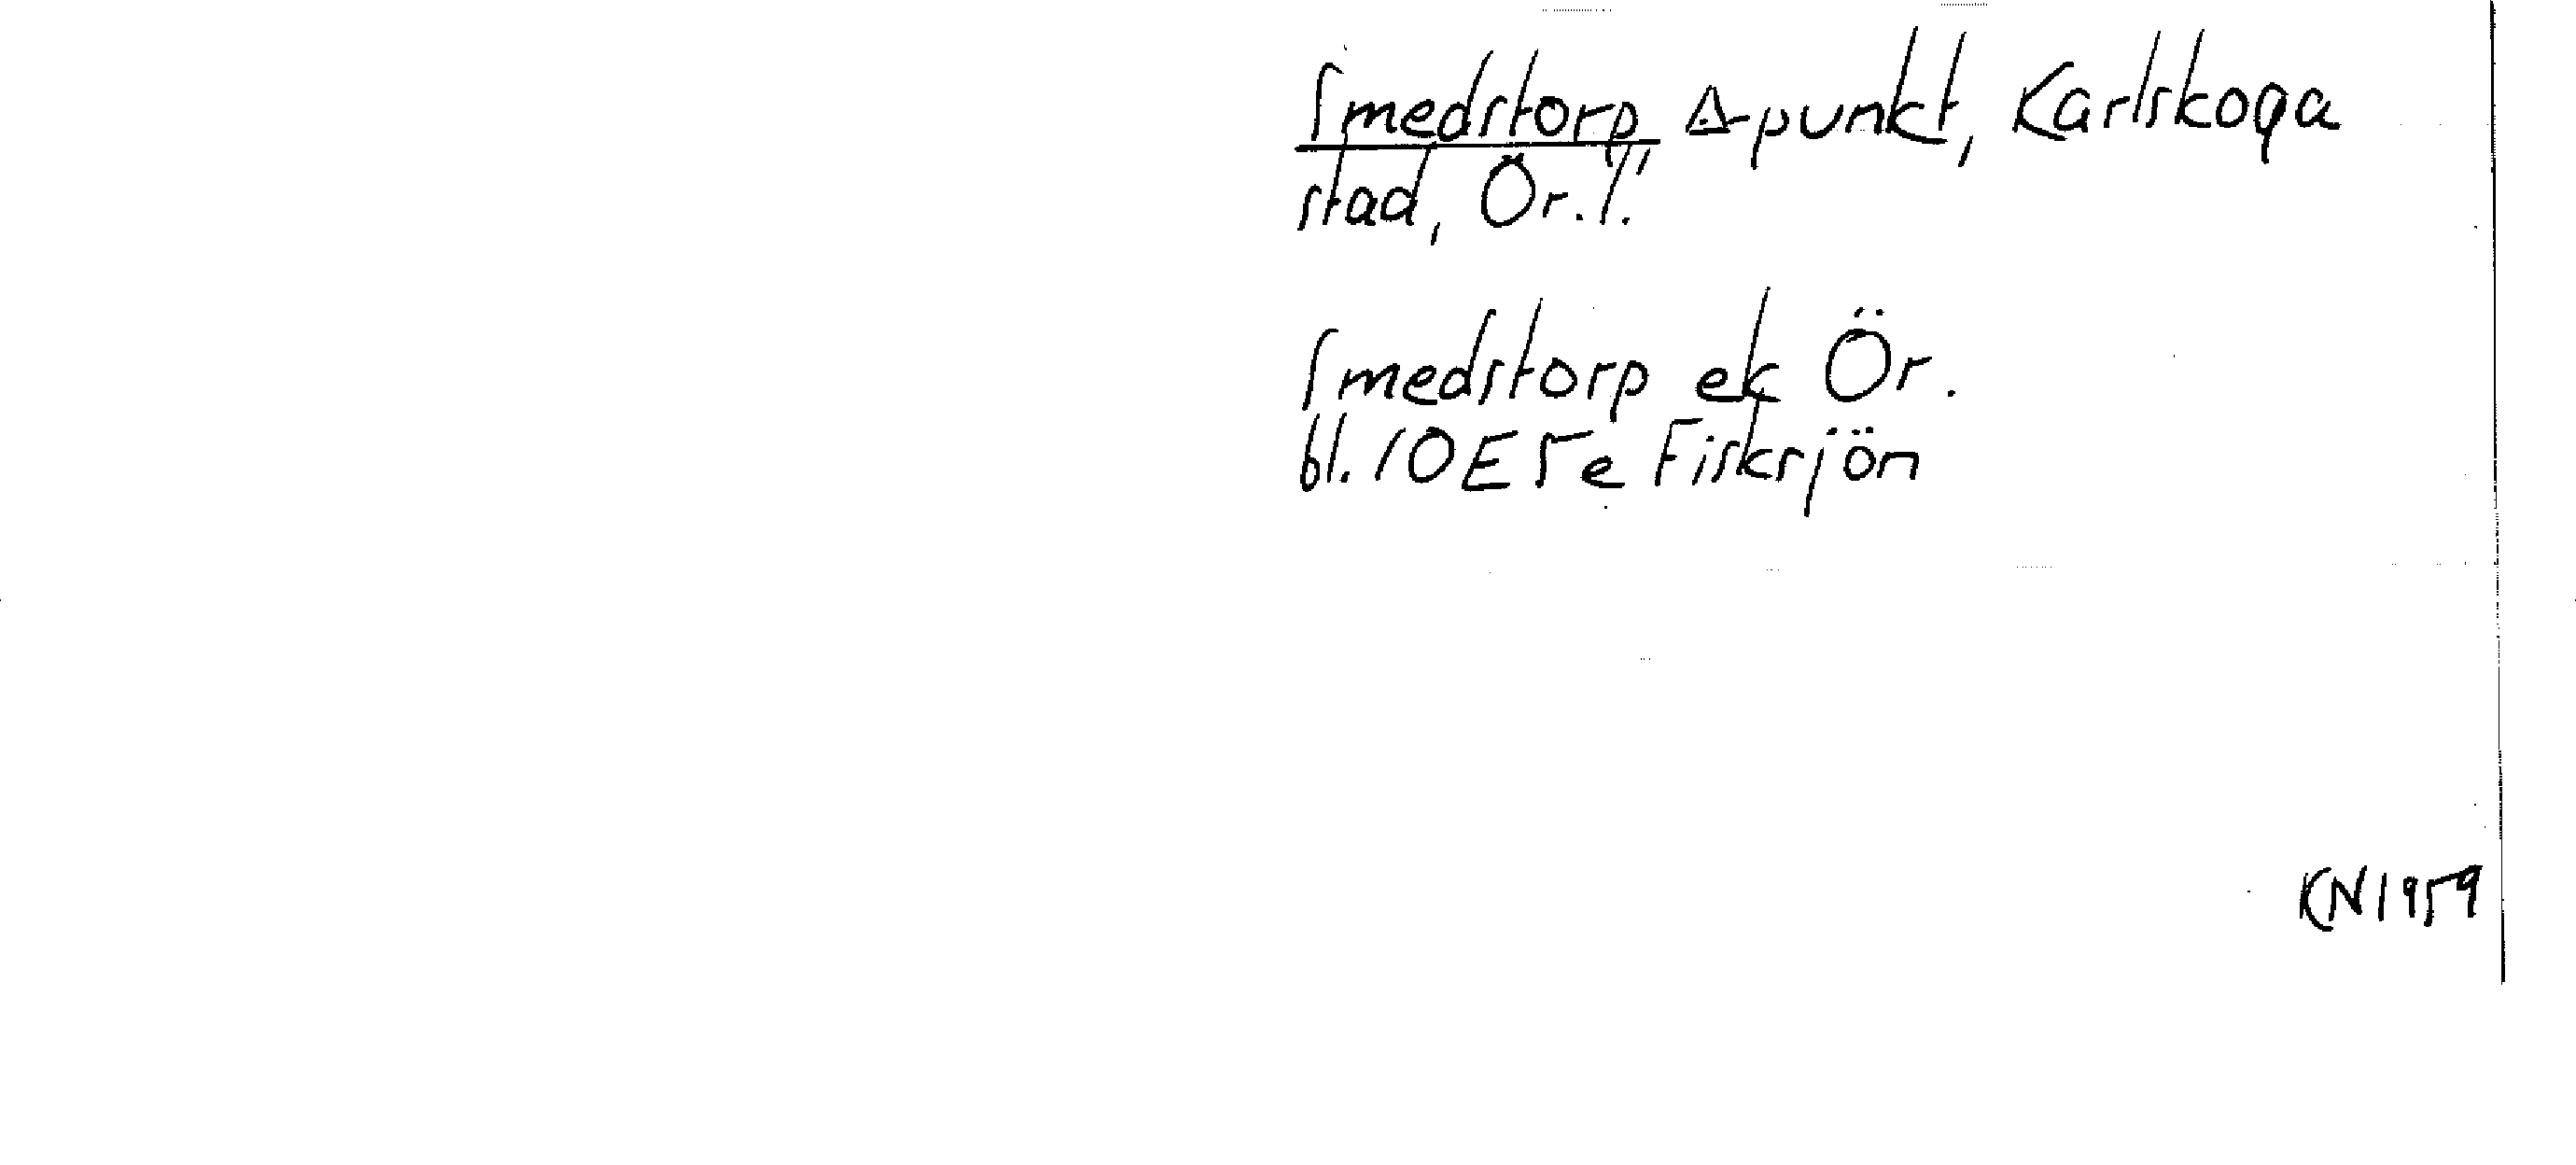 Smedstorp △-punkt, Karlskoga
stad, Ör. l.
Smedstorp ek Ör.
bl. 10 E 5e Fisksjön
KN 1959